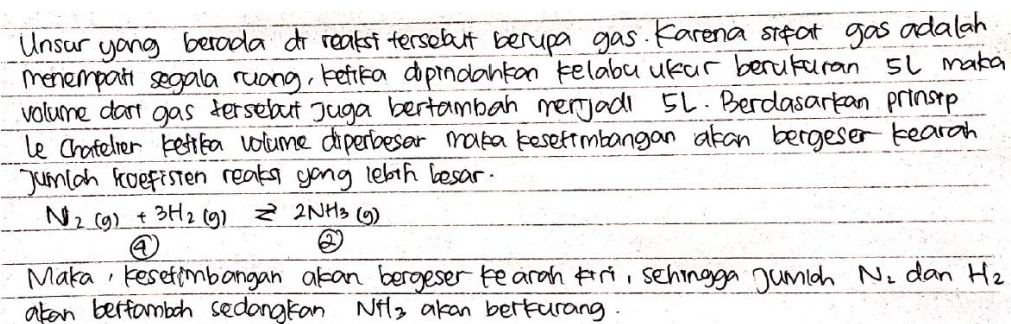 Unsur yang berada di reaksi tersebut berupa gas. Karena sifat gas adalah
menempati segala ruang, ketika dipindahkan kelabu ukur berukuran 5L maka
volume dari gas tersebut juga bertambah menjadi 5L. Berdasarkan prinsip
Le Chatelier ketika volume diperbesar maka kesetimbangan akan bergeser kearah
jumlah koefisien reaksi yang lebih besar.
N₂ (g) + 3H₂ (g) ⇄ 2NH₃ (g)
④ ②
Maka, kesetimbangan akan bergeser ke arah kiri, sehingga jumlah N₂ dan H₂
akan bertambah sedangkan NH₃ akan berkurang.